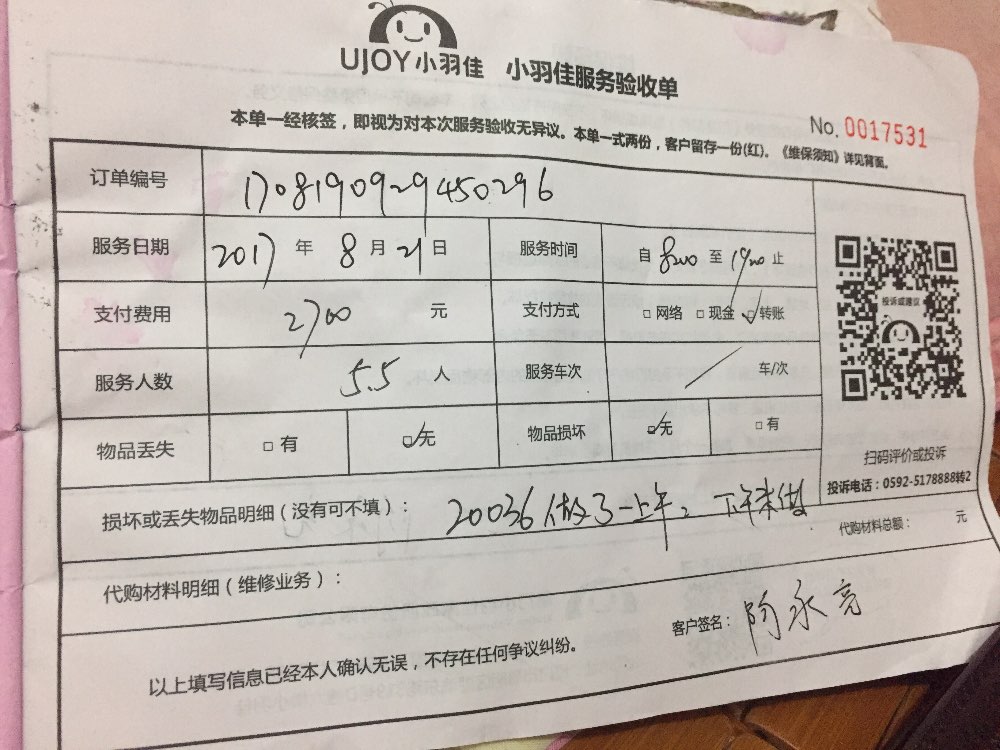 UJOY小羽佳 小羽佳服务验收单
No. 0017531
本单一经核签，即视为对本次服务验收无异议。本单一式两份，客户留存一份(红)。《维保须知》详见背面。
订单编号 1708190929450296
服务日期 2017 年 8 月 21 日 服务时间 自 8:00 至 19:00 止
支付费用 2700 元 支付方式 □ 网络 □ 现金 ☑ 转账
服务人数 5.5 人 服务车次 / 车/次
物品丢失 □ 有 ☑ 无 物品损坏 ☑ 无 □ 有
投诉或建议
扫码评价或投诉
投诉电话：0592-5178888转2
损坏或丢失物品明细（没有可不填）： 20036做了一上午，下午未做
代购材料总额： 元
代购材料明细（维修业务）：
客户签名： 陶永亮
以上填写信息已经本人确认无误，不存在任何争议纠纷。